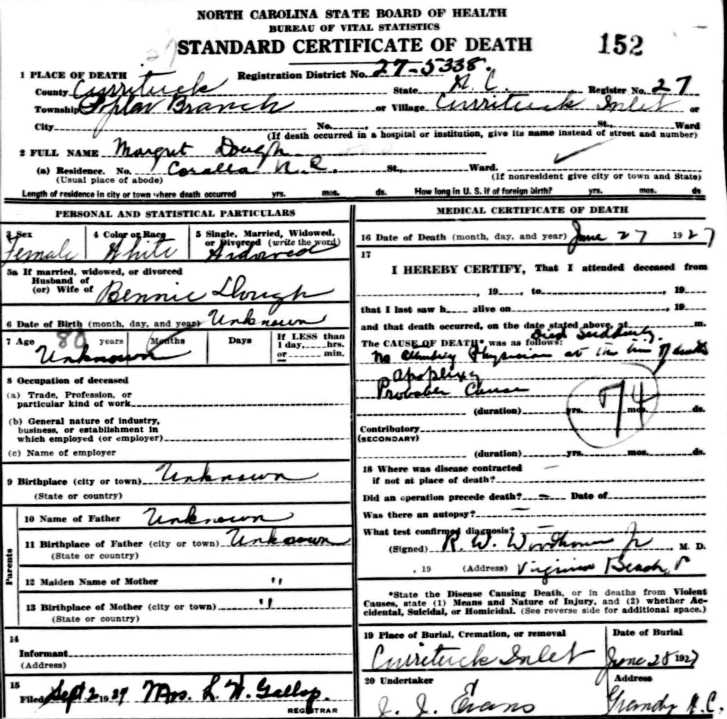 NORTH CAROLINA STATE BOARD OF HEALTH
BUREAU OF VITAL STATISTICS
STANDARD CERTIFICATE OF DEATH
152
1 PLACE OF DEATH Registration District No. 27-5338
County Currituck State N.C. Register No. 27
Township Poplar Branch or Village Currituck Inlet or
City No. , St., Ward
(If death occurred in a hospital or institution, give its name instead of street and number)
2 FULL NAME Margret Dough
(a) Residence. No. Corolla N.C. St., Ward.
(Usual place of abode) (If nonresident give city or town and State)
Length of residence in city or town where death occurred yrs. mos. ds. How long in U. S. if of foreign birth? yrs. mos. ds.
PERSONAL AND STATISTICAL PARTICULARS
3 Sex 4 Color or Race 5 Single, Married, Widowed, or Divorced (write the word)
Female White Widowed
5a If married, widowed, or divorced
Husband of
(or) Wife of Bennie Dough
6 Date of Birth (month, day, and year) Unknown
7 Age 80 years Months Days If LESS than 1 day, hrs. or min.
Unknown
8 Occupation of deceased
(a) Trade, Profession, or
particular kind of work
(b) General nature of industry,
business, or establishment in
which employed (or employer)
(c) Name of employer
9 Birthplace (city or town) Unknown
(State or country)
Parents
10 Name of Father Unknown
11 Birthplace of Father (city or town) Unknown
(State or country)
12 Maiden Name of Mother "
13 Birthplace of Mother (city or town) "
(State or country)
14
Informant
(Address)
15
Filed Sept 2 1927 Mrs. L. W. Gallop
REGISTRAR
MEDICAL CERTIFICATE OF DEATH
16 Date of Death (month, day, and year) June 27 1927
17
I HEREBY CERTIFY, That I attended deceased from
, 19 to , 19
that I last saw h alive on , 19
and that death occurred, on the date stated above, at m.
Died Suddenly
The CAUSE OF DEATH* was as follows:
No Physician at the time of death
Apoplexy
Probable Cause
(duration) yrs. mos. ds.
74
Contributory
(SECONDARY)
(duration) yrs. mos. ds.
18 Where was disease contracted
if not at place of death? —
Did an operation precede death? — Date of
Was there an autopsy? —
What test confirmed diagnosis? —
(Signed) R. W. Woodhouse Jr M. D.
, 19 (Address) Virginia Beach
*State the Disease Causing Death, or in deaths from Violent
Causes, state (1) Means and Nature of Injury, and (2) whether Ac-
cidental, Suicidal, or Homicidal. (See reverse side for additional space.)
19 Place of Burial, Cremation, or removal Date of Burial
Currituck Inlet June 28 1927
20 Undertaker Address
J. J. Evans Grandy N.C.